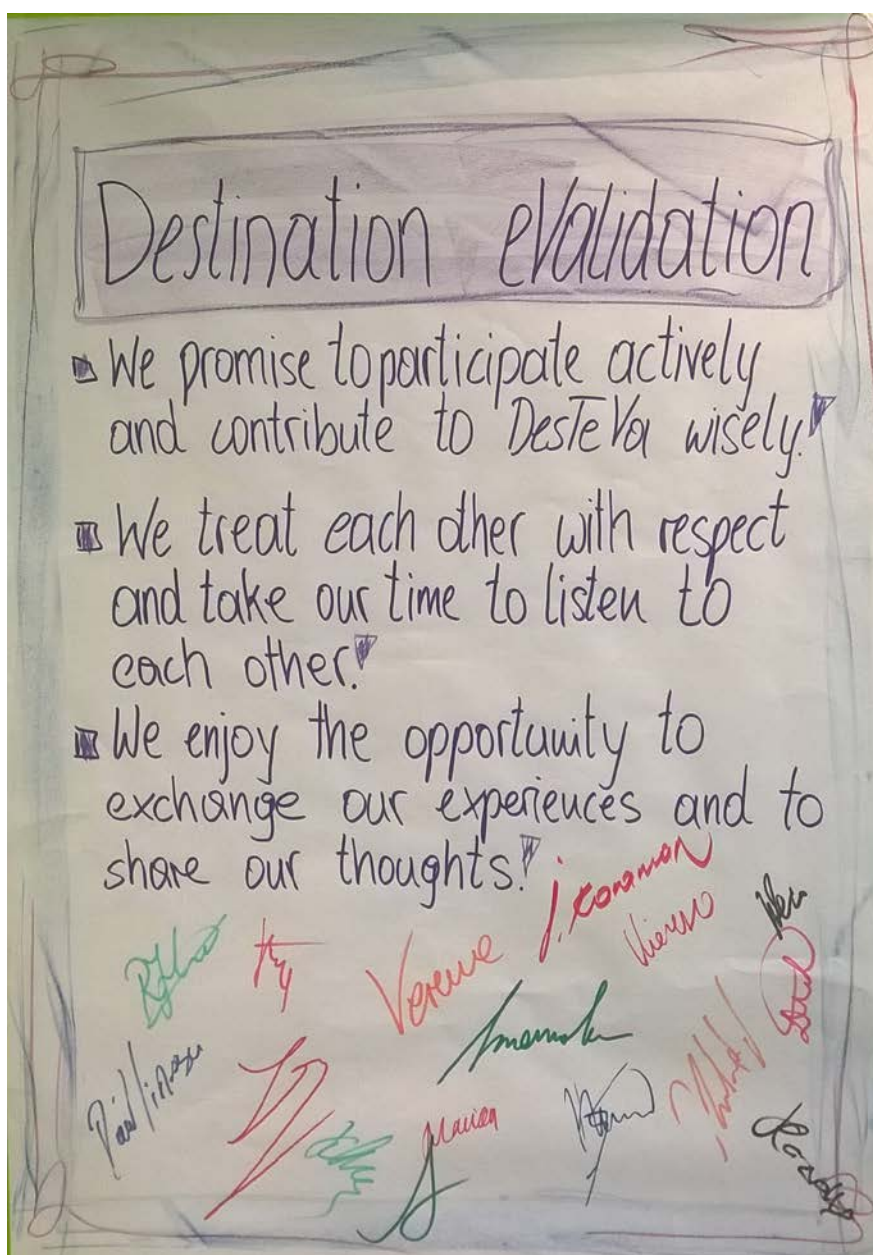 Destination eValidation
We promise to participate actively
and contribute to DesTeVa wisely.
We treat each other with respect
and take our time to listen to
each other.
We enjoy the opportunity to
exchange our experiences and to
share our thoughts.
Verena